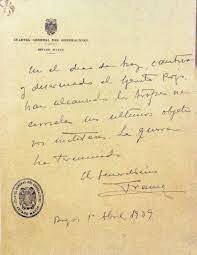 CUARTEL GENERAL DEL GENERALISIMO
ESTADO MAYOR
En el dia de hoy, cautivo
y desarmado el Ejército Rojo,
han alcanzado las tropas na-
cionales sus ultimos objeti-
vos militares. La guerra
ha terminado.
El Generalisimo
Franco
Burgos 1º Abril 1939